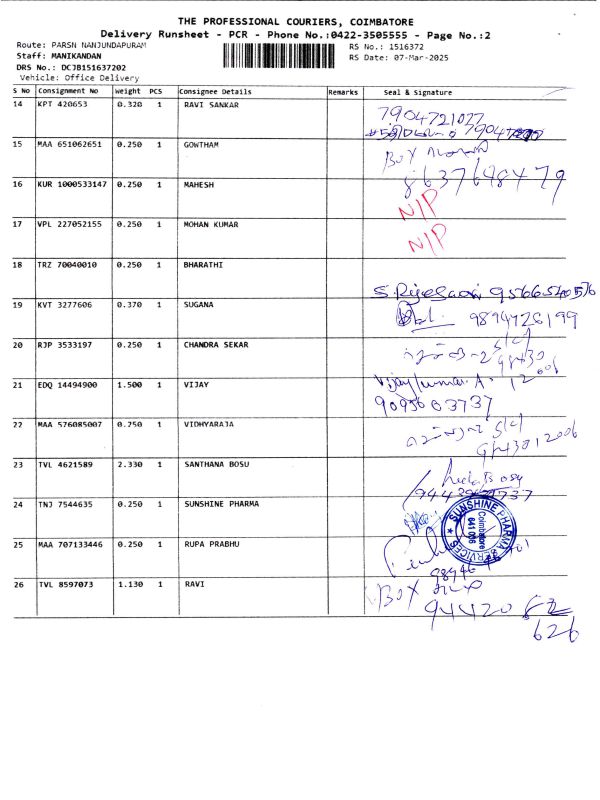 THE PROFESSIONAL COURIERS, COIMBATORE
Delivery Runsheet - PCR - Phone No.:0422-3505555 - Page No.:2
Route: PARSN NANJUNDAPURAM RS No.: 1516372
Staff: MANIKANDAN RS Date: 07-Mar-2025
DRS No.: DCJB151637202
Vehicle: Office Delivery
S No Consignment No Weight PCS Consignee Details Remarks Seal & Signature
14 KPT 420653 0.320 1 RAVI SANKAR 7904721027
15 MAA 651062651 0.250 1 GOWTHAM Box
16 KUR 1000533147 0.250 1 MAHESH 8637648479
N/P
17 VPL 227052155 0.250 1 MOHAN KUMAR N/P
18 TRZ 70040010 0.250 1 BHARATHI
19 KVT 3277606 0.370 1 SUGANA 9894728199
20 RJP 3533197 0.250 1 CHANDRA SEKAR
21 EDQ 14494900 1.500 1 VIJAY Vijay kumar. A.
22 MAA 576085007 0.250 1 VIDHYARAJA
23 TVL 4621589 2.330 1 SANTHANA BOSU
24 TNJ 7544635 0.250 1 SUNSHINE PHARMA SUNSHINE PHARMA SERVICES
Coimbatore
25 MAA 707133446 0.250 1 RUPA PRABHU
26 TVL 8597073 1.130 1 RAVI Box
94420
626